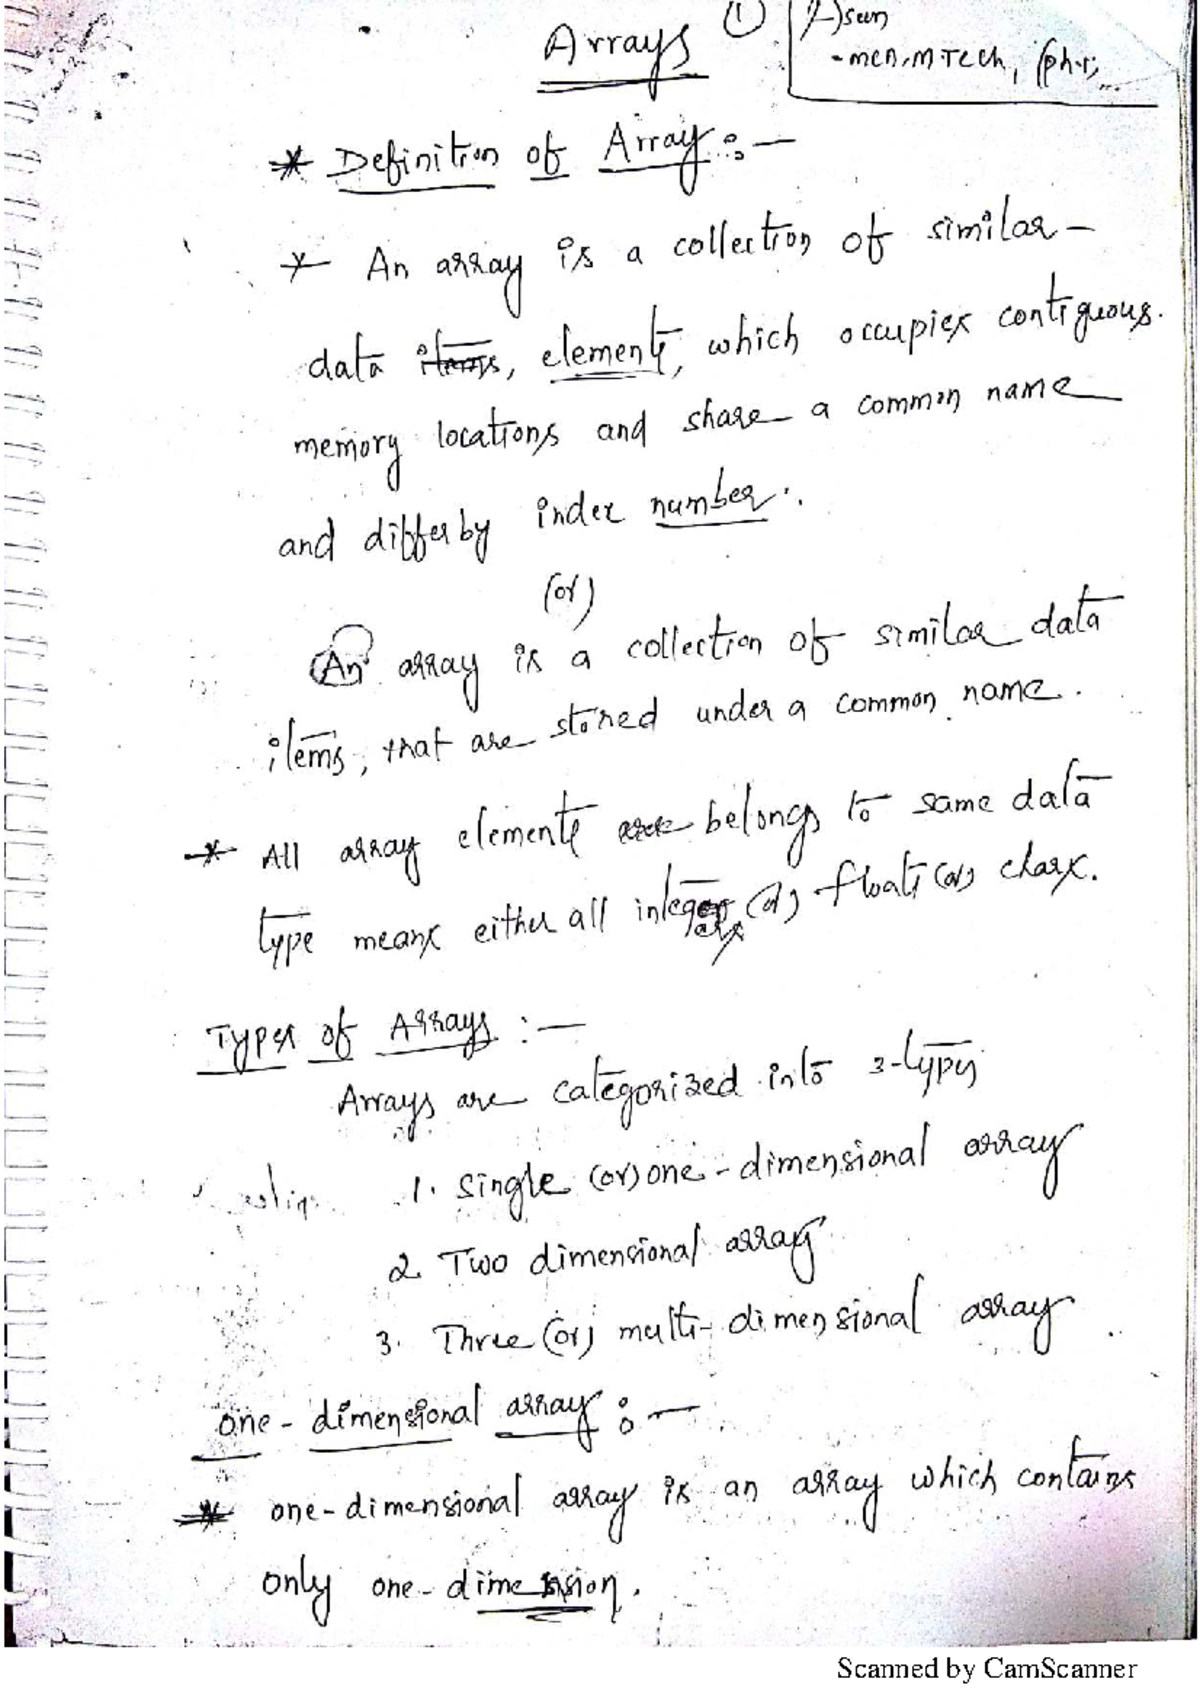 Arrays
1
-MCA, M.Tech, (ph.
* Definition of Array :-
* An array is a collection of similar -
data items, elements, which occupies contiguous.
memory locations and share a common name
and differ by index number.
(or)
An array is a collection of similar data
items, that are stored under a common name.
* All array elements are belongs to same data
type means either all integers (or) floats (or) chars.
Types of Arrays :-
Arrays are categorized into 3-types
1. single (or) one-dimensional array
2. Two dimensional array
3. Three (or) multi-dimensional array
one-dimensional array :-
* one-dimensional array is an array which contains
only one-dimension.
Scanned by CamScanner